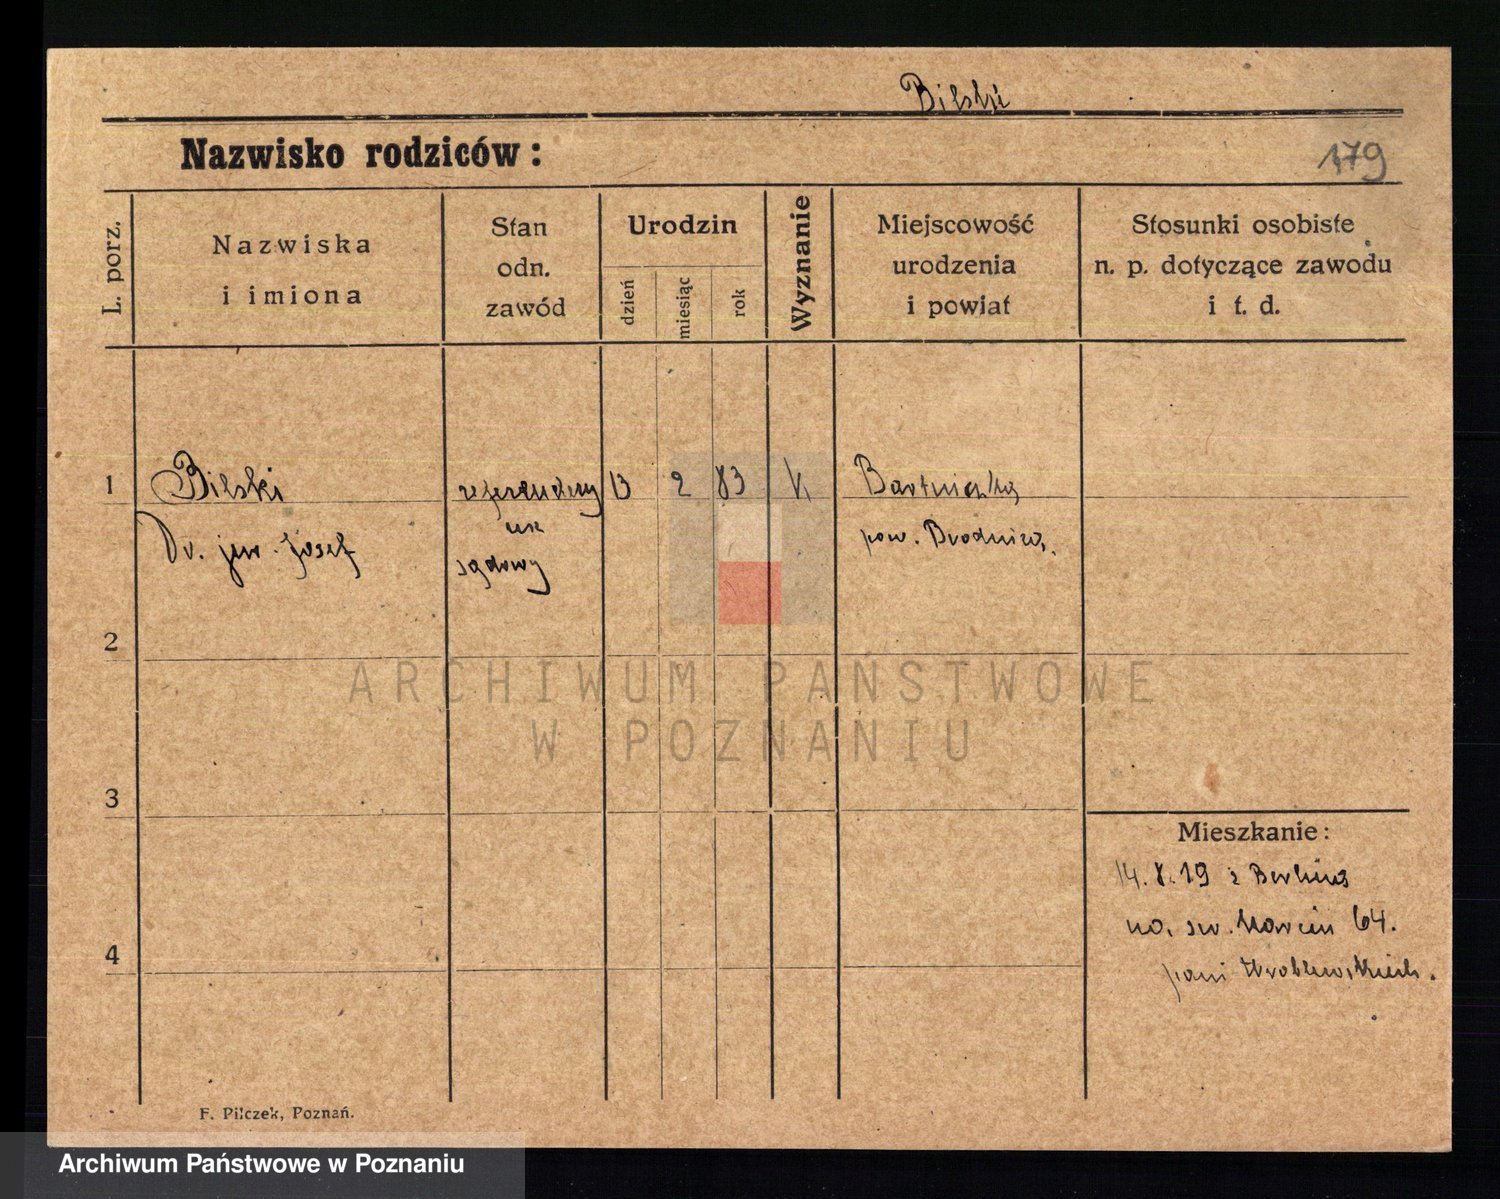 Bilski
Nazwisko rodziców:
179
L. porz.
Nazwiska
i imiona
Stan
odn.
zawód
Urodzin
dzień
miesiąc
rok
Wyznanie
Miejscowość
urodzenia
i powiat
Stosunki osobiste
n. p. dotyczące zawodu
i t. d.
1
Bilski
Dr. jur. Josef
sądowy
13
2
83
k.
pow. Brodnica
2
ARCHIWUM PAŃSTWOWE
W POZNANIU
3
Mieszkanie:
14.8.19 z Berlina
św. Marcin 64.
4
F. Pilczek, Poznań.
Archiwum Państwowe w Poznaniu